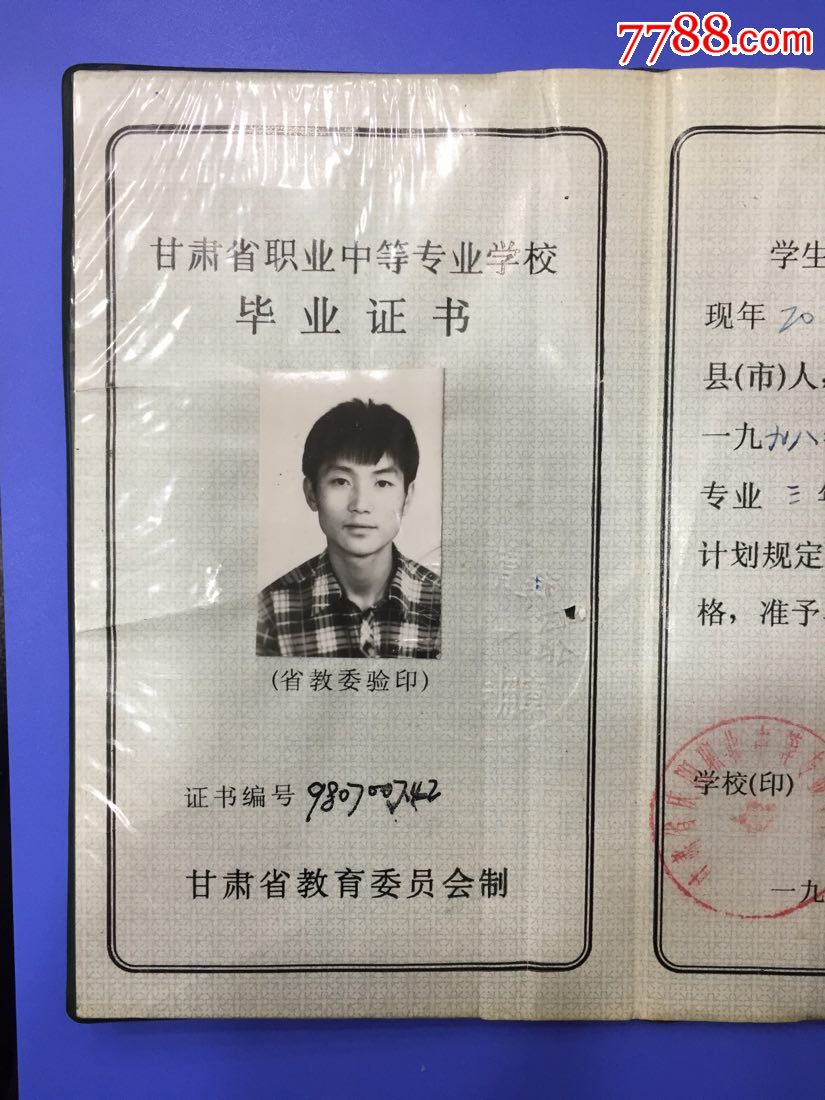 7788.com
甘肃省职业中等专业学校
毕业证书
(省教委验印)
证书编号 980700742
甘肃省教育委员会制
学生
现年 20
县(市)人,
一九九八
专业 三年
计划规定
格，准予
学校(印)
一九